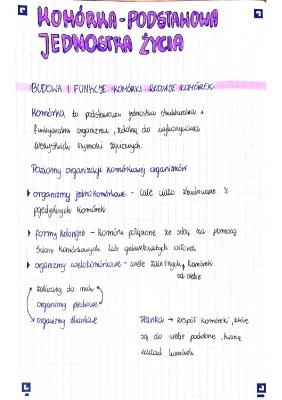 KOMÓRKA - PODSTAWOWA
JEDNOSTKA ŻYCIA
BUDOWA I FUNKCJE KOMÓRKI. RODZAJE KOMÓREK
Komórka to podstawowa jednostka strukturalna i
funkcjonalna organizmu, zdolna do wykonywania
wszystkich czynności życiowych.
Poziomy organizacji komórkowej organizmów
organizmy jednokomórkowe - całe ciało zbudowane z
pojedynczych komórek
formy kolonijne - komórki połączone ze sobą za pomocą
ścian komórkowych lub galaretowatych otoczek
organizmy wielokomórkowe - wiele zależnych komórek
od siebie
zaliczamy do nich
organizmy plechowe
organizmy tkankowe
Tkanka → zespół komórek, które
są do siebie podobne, tworzą
układ komórek